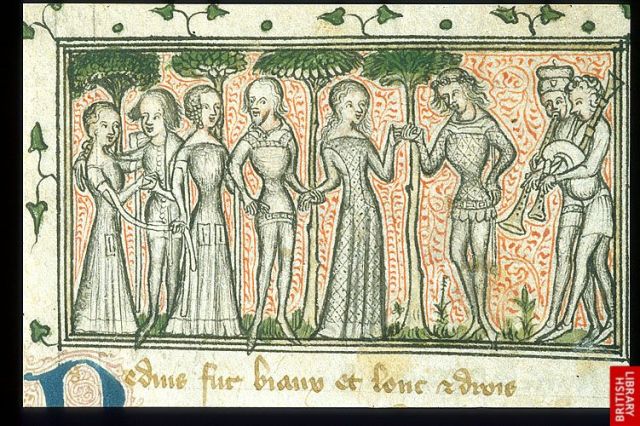 Deduis fut biaux et lonc & drois
BRITISH LIBRARY